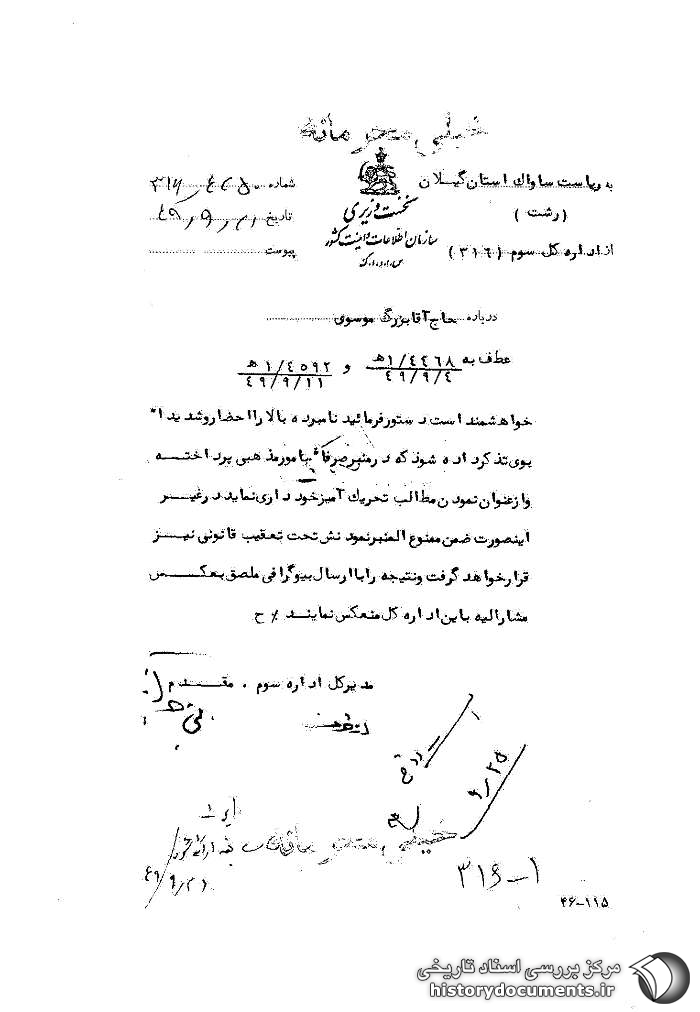 خیلی محرمانه
به ریاست ساواک استان گیلان
(رشت)
از اداره کل سوم (۳۱۶)
نخست وزیری
سازمان اطلاعات و امنیت کشور
س.ا.و.ا.ک
شماره
تاریخ ۴۹٫۹٫۲۱
پیوست
درباره حاج آقا بزرگ موسوی
عطف به ۱/۴۲۶۸ه‍ و ۱/۴۵۹۲ه‍
۴۹/۹/۴ ۴۹/۹/۱۱
خواهشمند است دستور فرمائید نامبرده بالا را احضار و شدیدا"
بوی تذکر داده شود که در منبر صرفا" بامور مذهبی پرداختــه
و از عنوان نمودن مطالب تحریک آمیز خودداری نماید در غیــر
اینصورت ضمن ممنوع المنبر نمودنش تحت تعقیب قانونی نیــز
قرار خواهد گرفت و نتیجه را با ارسال بیوگرافی ملصق بعکــس
مشارالیه باین اداره کل منعکس نمایند ٪ ح
مدیرکل اداره سوم . مقــدم
۹/۲۵
خیلی محرمانه
۳۱۶-۱
۴۶-۱۱۵
مرکز بررسی اسناد تاریخی
historydocuments.ir